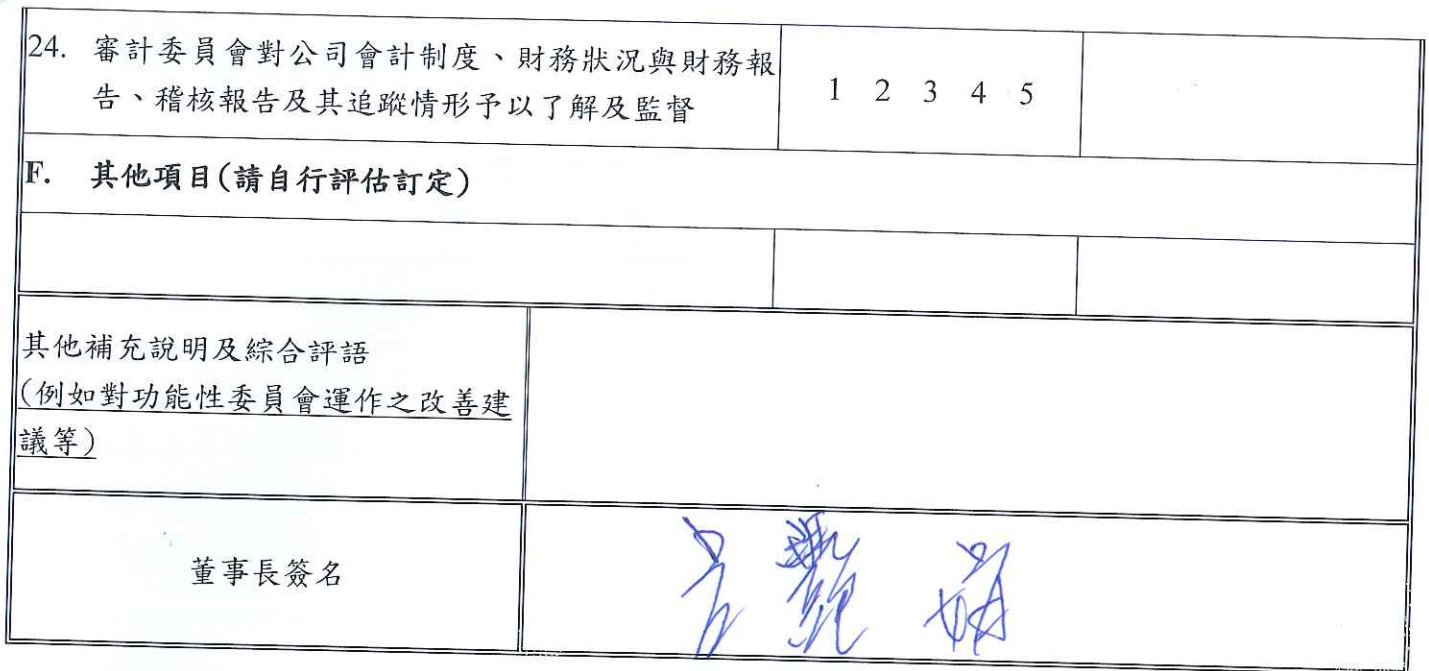 24. 審計委員會對公司會計制度、財務狀況與財務報
告、稽核報告及其追蹤情形予以了解及監督
1 2 3 4 5
F. 其他項目(請自行評估訂定)
其他補充說明及綜合評語
(例如對功能性委員會運作之改善建
議等)
董事長簽名